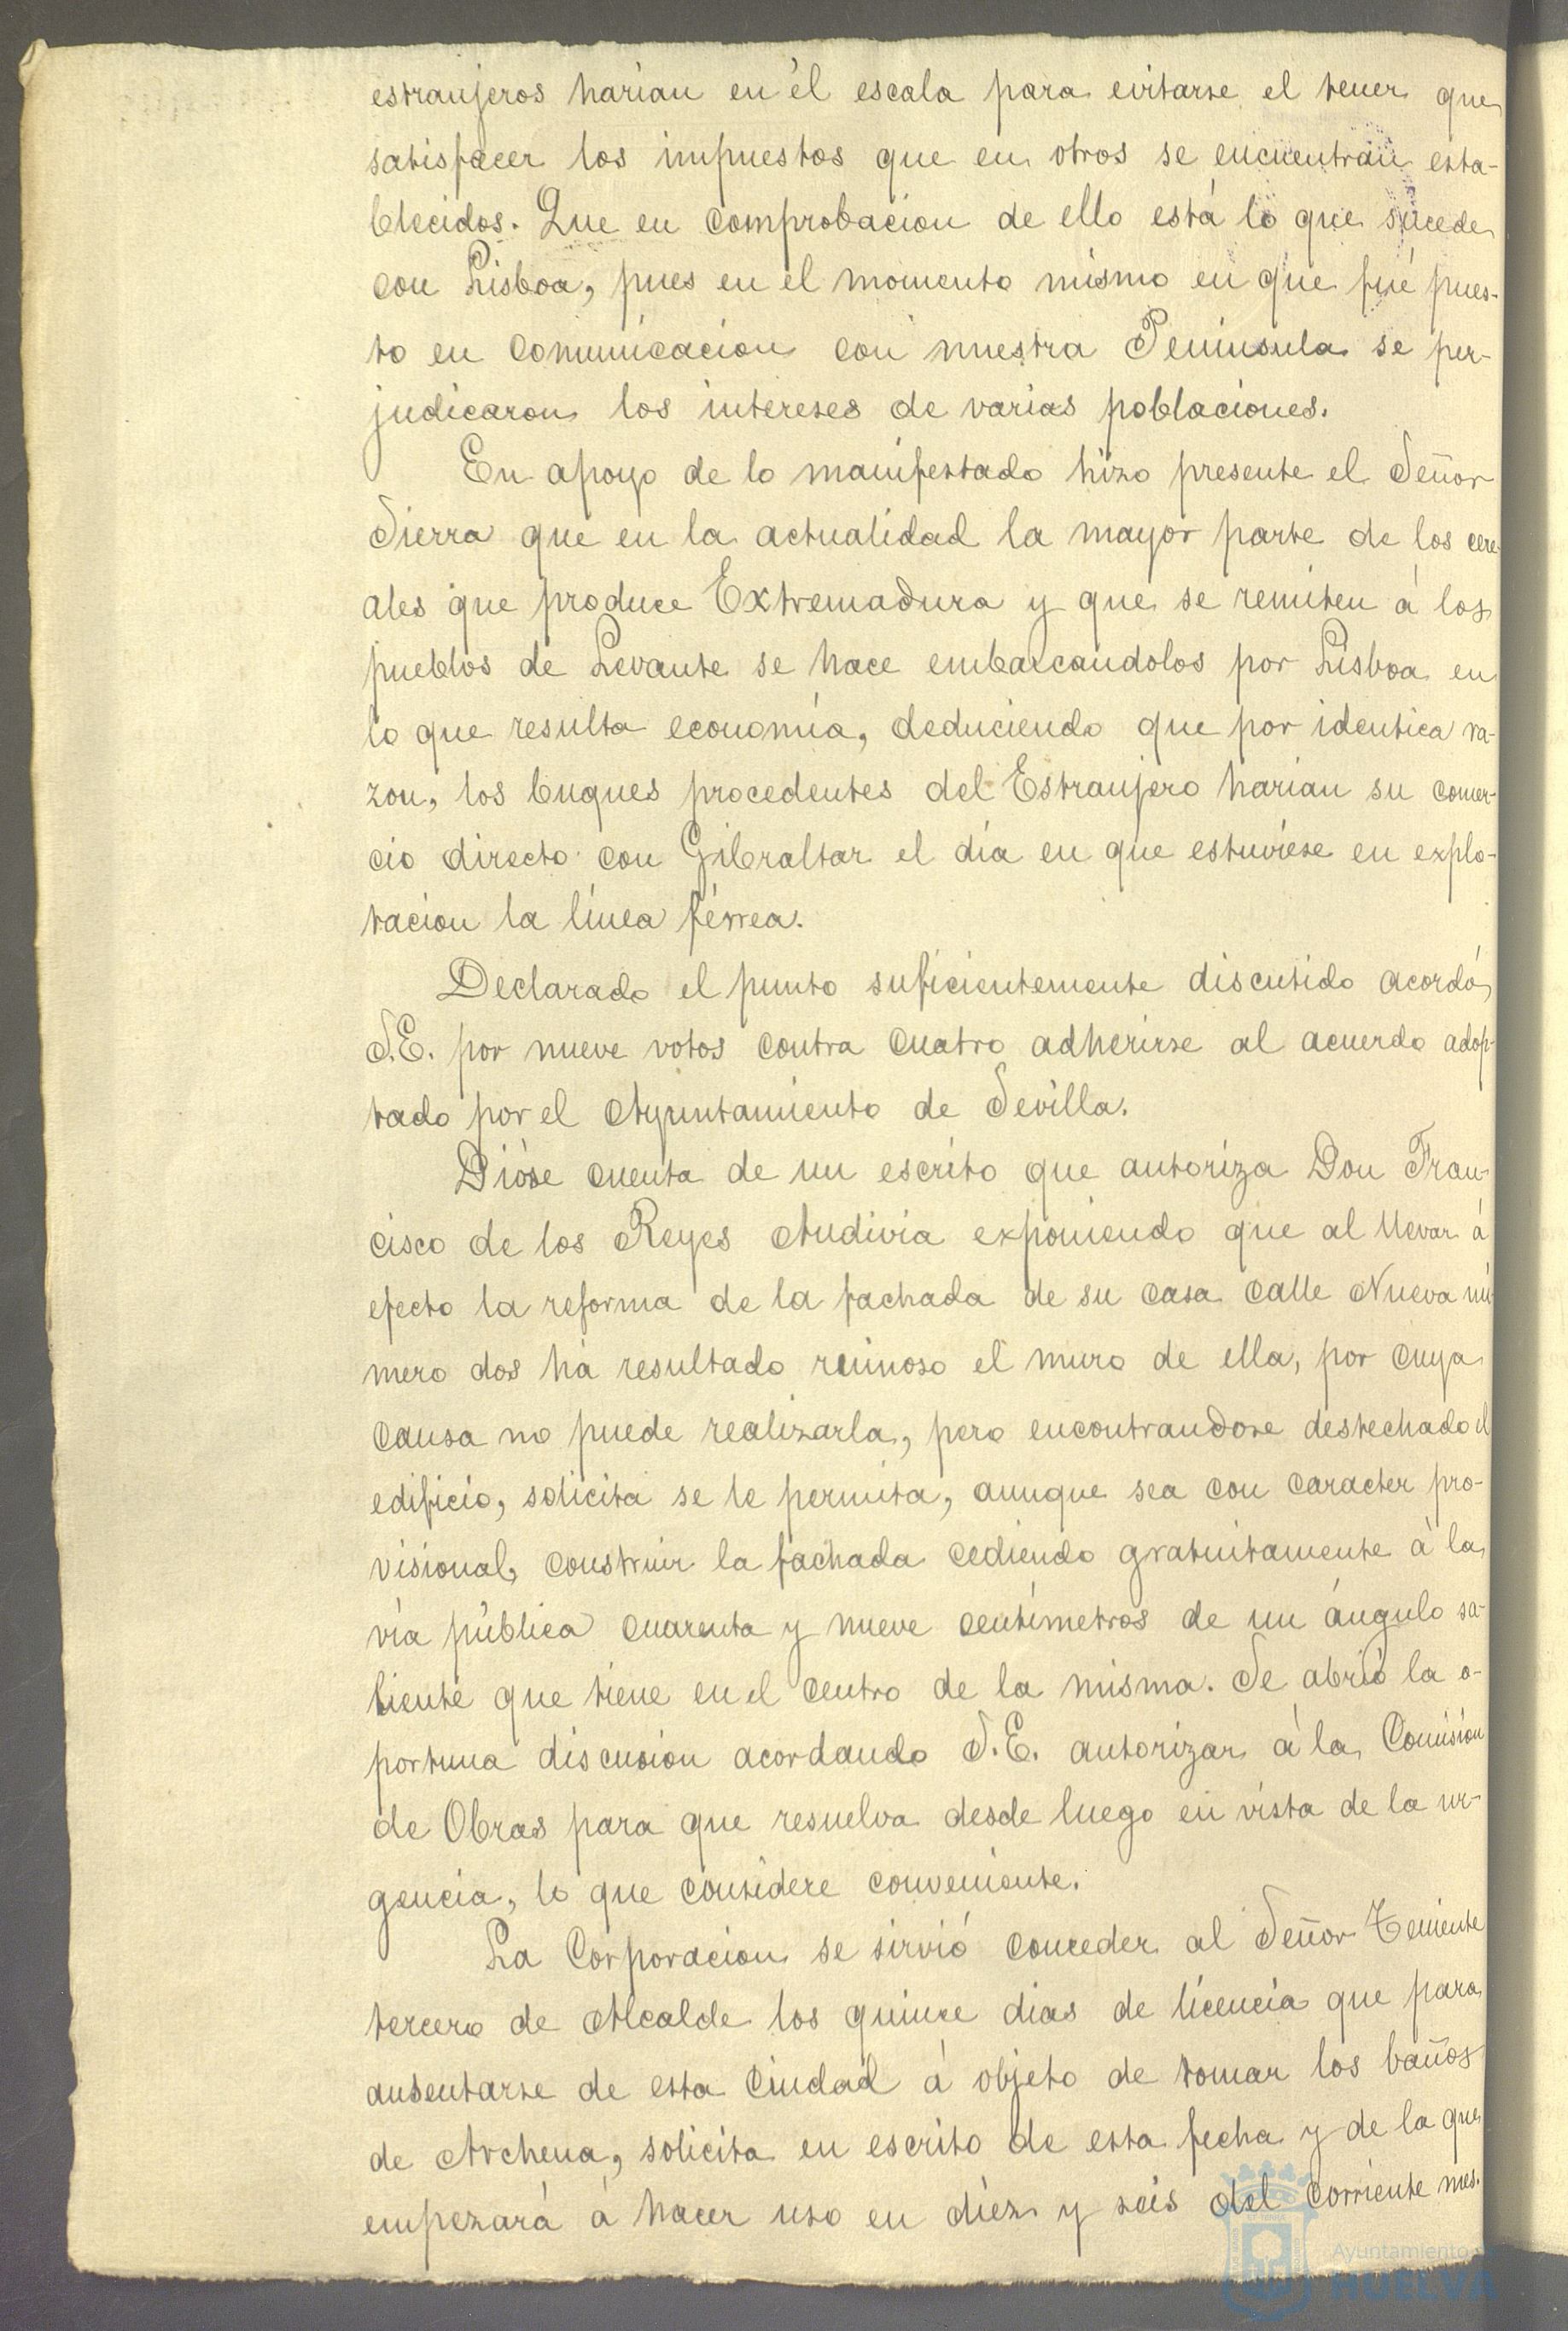 estranjeros harían en él escala para evitarse el tener que
satisfacer los impuestos que en otros se encuentran esta-
blecidos. Que en comprobacion de ello está lo que sucede
con Lisboa, pues en el momento mismo en que fué pues-
to en comunicacion con nuestra Península se per-
judicaron los intereses de varias poblaciones.
En apoyo de lo manifestado hizo presente el Señor
Sierra que en la actualidad la mayor parte de los cere-
ales que produce Extremadura y que se remiten á los
pueblos de Levante se hace embarcandolos por Lisboa en
lo que resulta economía, deduciendo que por identica ra-
zon, los buques procedentes del Estranjero harian su comer-
cio directo con Gibraltar el día en que estuviese en explo-
tacion la línea férrea.
Declarado el punto suficientemente discutido acordó
S.E. por nueve votos contra cuatro adherirse al acuerdo adop-
tado por el Ayuntamiento de Sevilla.
Dióse cuenta de un escrito que autoriza Don Fran-
cisco de los Reyes Audivia exponiendo que al llevar á
efecto la reforma de la fachada de su casa calle Nueva nú-
mero dos ha resultado ruinoso el muro de ella, por cuya
causa no puede realizarla, pero encontrandose destechado el
edificio, solicita se le permita, aunque sea con caracter pro-
visional, construir la fachada cediendo gratuitamente á la
vía pública cuarenta y nueve centímetros de un ángulo sa-
liente que tiene en el centro de la misma. Se abrió la o-
portuna discusion acordando S.E. autorizar á la Comision
de Obras para que resuelva desde luego en vista de la ur-
gencia, lo que considere conveniente.
La Corporacion se sirvió conceder al Señor Teniente
tercero de Alcalde los quince dias de licencia que para
ausentarse de esta Ciudad á objeto de tomar los baños
de Archena, solicita en escrito de esta fecha y de la que
empezará á hacer uso en diez y seis del corriente mes.
Ayuntamiento
HUELVA